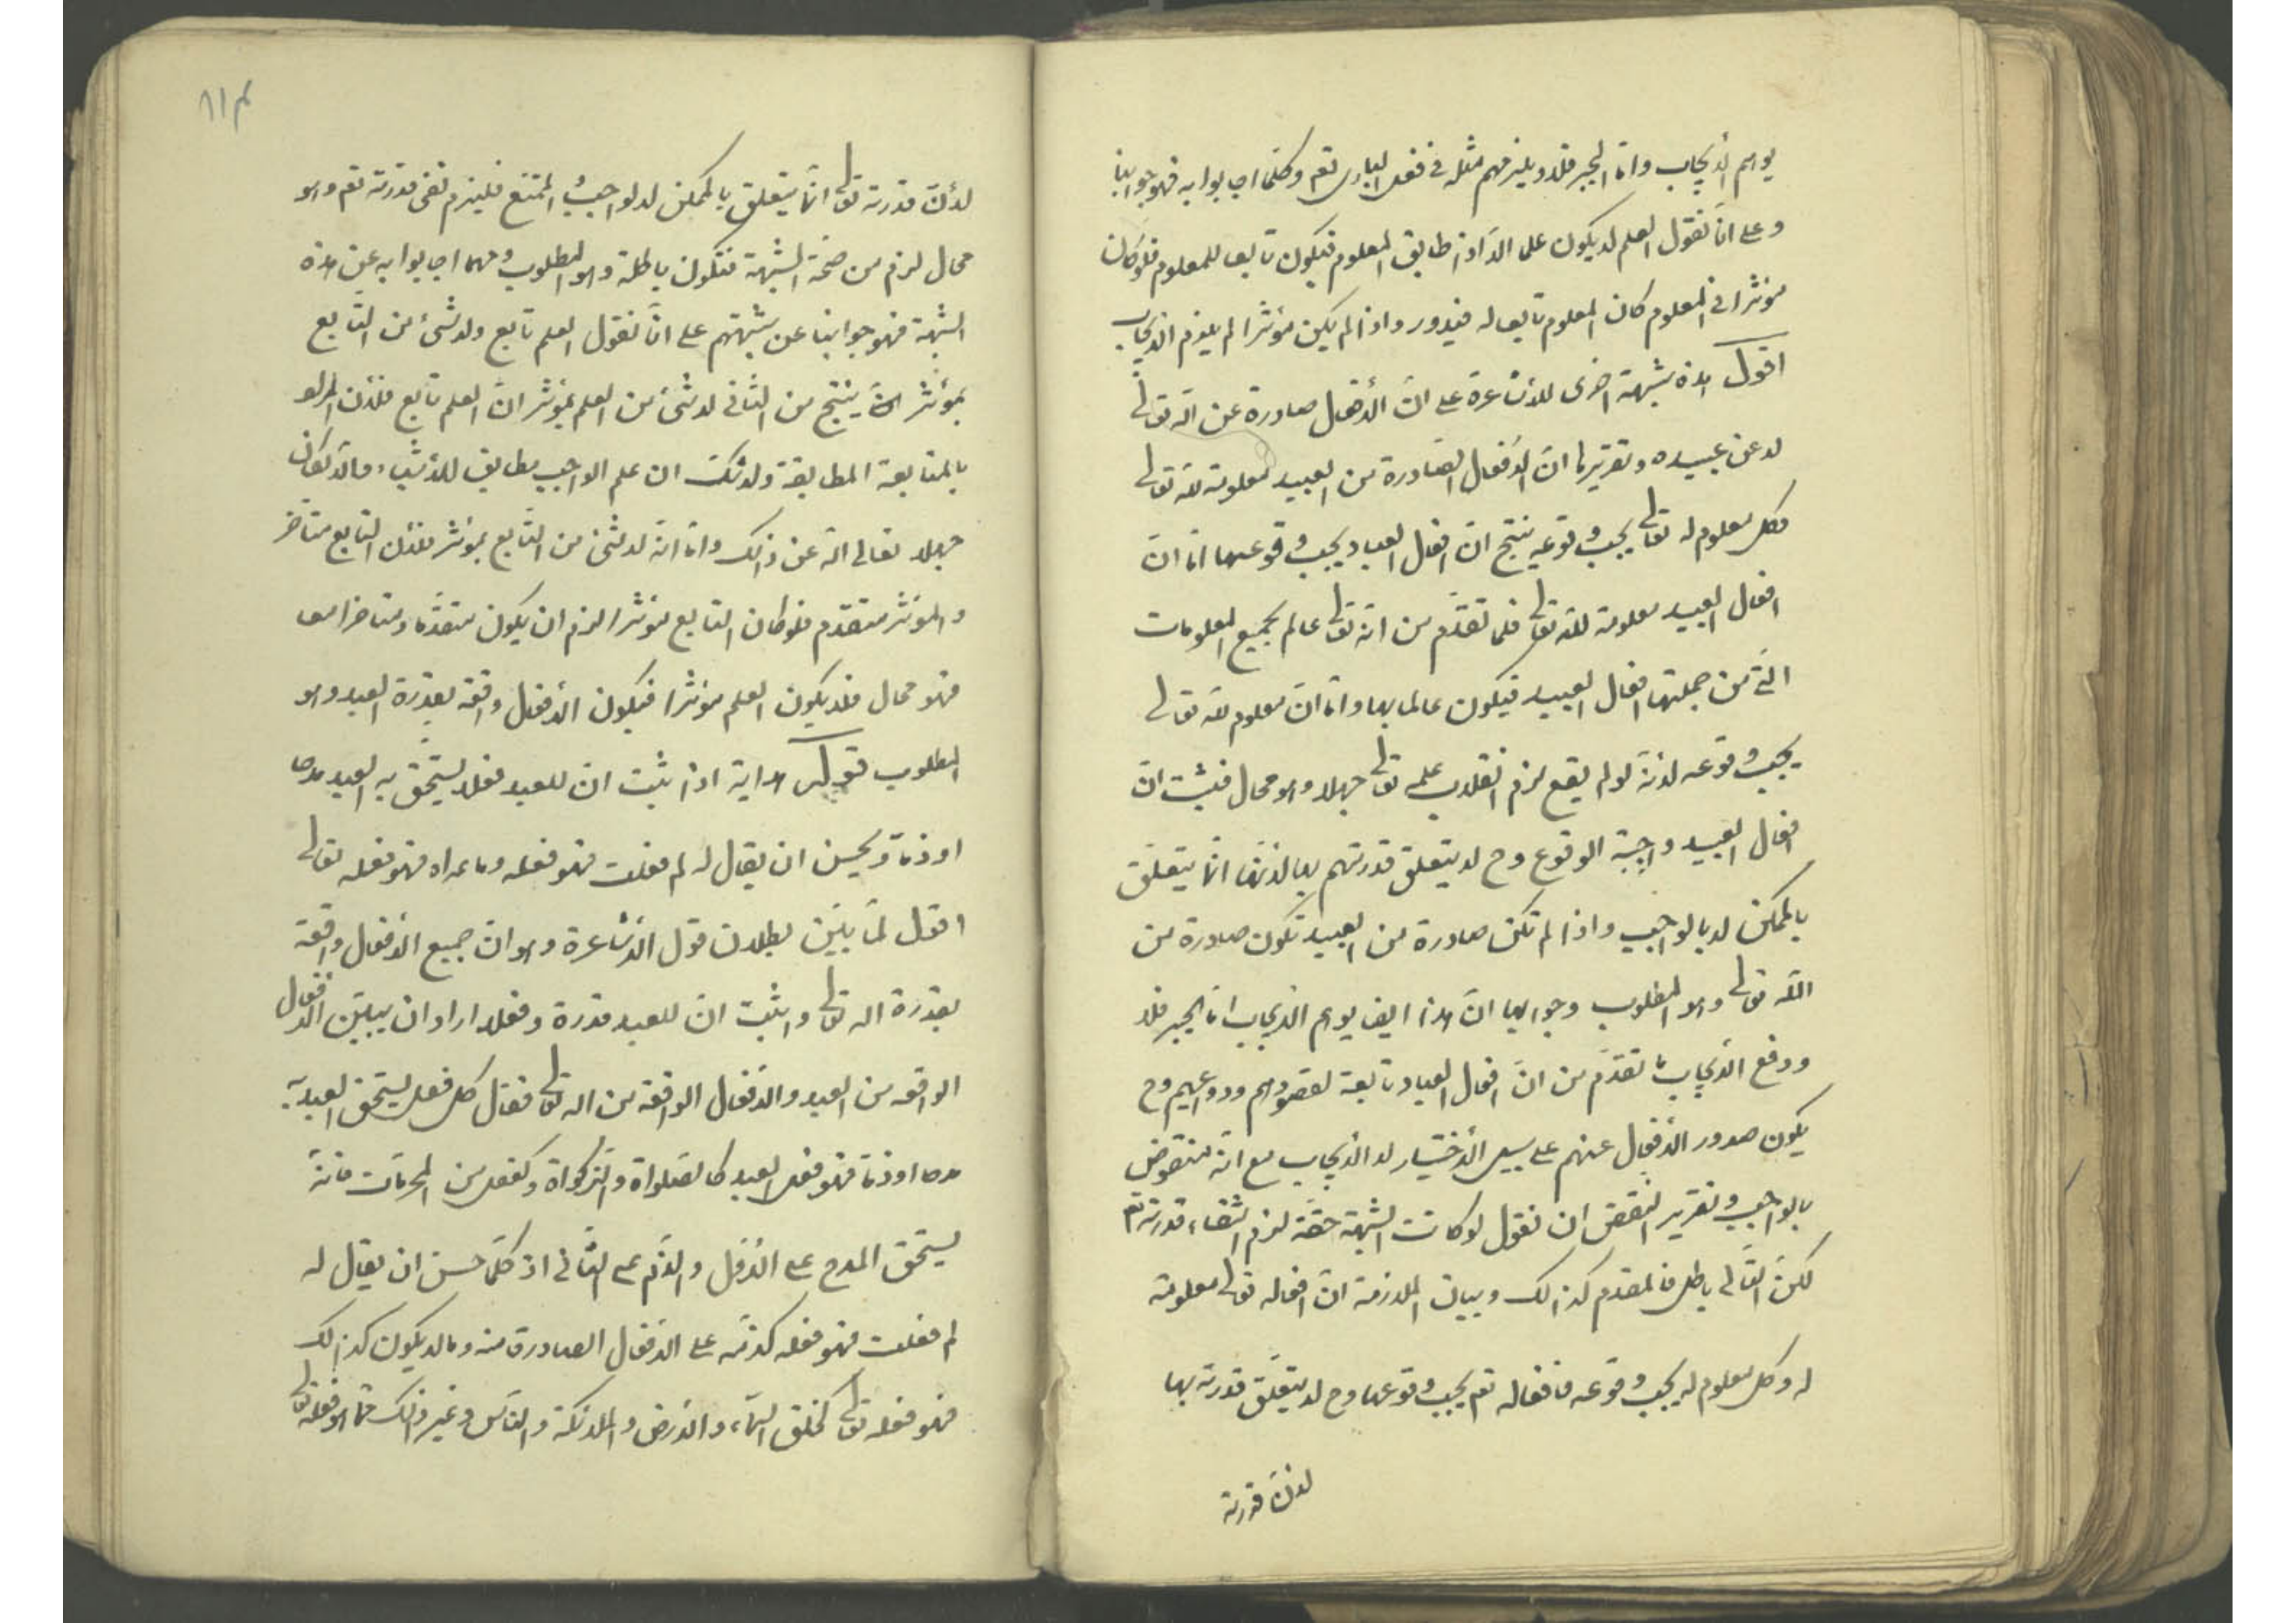 يوهم الأيجاب واما الجبر فلا ويلزمهم مثله في فعل الباري تعم وكلما اجابوا به فهو جوابنا
وعلى انا نقول العلم لا يكون علما الا اذا طابق المعلوم فيكون تابعا للمعلوم فلو كان
مؤثرا في المعلوم كان المعلوم تابعا له فيدور واذا لم يكن مؤثرا لم يلزم الايجاب
اقول هذه شبهة اخرى للأشاعرة على ان الأفعال صادرة عن الله تعالى
لا عن عبيده وتقريرها ان الافعال الصادرة من العبيد معلومة لله تعالى
وكل معلوم له تعالى يجب وقوعه ينتج ان افعال العباد يجب وقوعها اما ان
افعال العبيد معلومة لله تعالى فلما تقدم من انه تعالى عالم بجميع المعلومات
التي من جملتها افعال العبيد فيكون عالما بها واما ان معلوم لله تعالى
يجب وقوعه لانه لو لم يقع لزم انقلاب علمه تعالى جهلا وهو محال فثبت ان
افعال العبيد واجبة الوقوع وح لا يتعلق قدرتهم بها لانها انما يتعلق
بالممكن لا بالواجب واذا لم تكن صادرة من العبيد تكون صادرة من
الله تعالى وهو المطلوب وجوابها ان هذا ايضا يوهم الايجاب اما الجبر فلا
ودفع الأيجاب بما تقدم من ان افعال العباد تابعة لقصودهم ودواعيهم وح
يكون صدور الافعال عنهم على سبيل الأختيار لا الأيجاب مع انه منقوض
بالواجب وتقرير النقض ان نقول لو كانت الشبهة حقة لزم انتفاء قدرته تعم
لكن التالي باطل فالمقدم كذالك وبيان الملازمة ان افعاله تعالى معلومة
له وكل معلوم له يجب وقوعه فافعاله تعم يجب وقوعها وح لا يتعلق قدرته بها
لان قدرته
لأن قدرته تعالى انما يتعلق بالممكن لا لواجب والممتنع فيلزم نفي قدرته تعم وهو
محال لزم من صحة الشبهة فتكون باطلة وهو المطلوب ومهما اجابوا به عن هذه
الشبهة فهو جوابنا عن شبهتهم على انا نقول العلم تابع ولا شئ من التابع
بمؤثر ينتج من الثاني لا شئ من العلم بمؤثر ان العلم تابع فلان المراد
بالمتابعة المطابقة ولا شك ان علم الواجب مطابق للأشياء والا لكان
جهلا تعالى الله عن ذالك واما انه لا شئ من التابع بمؤثر فلان التابع متأخر
والمؤثر متقدم فلو كان التابع مؤثرا لزم ان يكون متقدما ومتاخرا معا
فهو محال فلا يكون العلم مؤثرا فيكون الأفعال واقعة بقدرة العبد وهو
المطلوب قوله هداية اذا ثبت ان للعبد فعلا يستحق به العبد مدحا
او ذما ويحسن ان يقال له لم فعلت فهو فعله وما عداه فهو فعله تعالى
اقول لما بين بطلان قول الاشاعرة وهو ان جميع الافعال واقعة
بقدرة الله تعالى واثبت ان للعبد قدرة وفعلا اراد ان يبين الافعال
الواقعه من العبد والافعال الواقعة من الله تعالى فقال كل فعل يستحق العبد به
مدحا او ذما فهو فعل العبد كالصلواة والزكواة وكفعل من المحرمات فانه
يستحق المدح على الأول والذم على الثاني اذ كلما حسن ان يقال له
لم فعلت فهو فعله كذمه على الافعال الصادرة منه وما لا يكون كذالك
فهو فعله تعالى كخلق السماء والارض والملائكة والناس وغير ذالك مما هو فعله تعالى